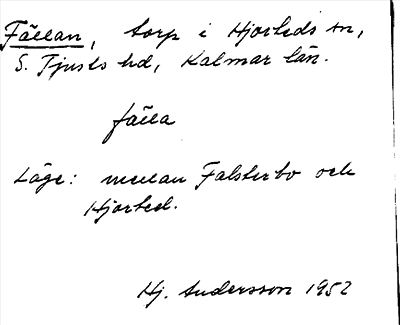 Fällan, torp i Hjorteds sn,
S. Tjusts hd, Kalmar län.
fälla
Läge: mellan Falsterbo och
Hjorted.
Hj. Andersson 1952